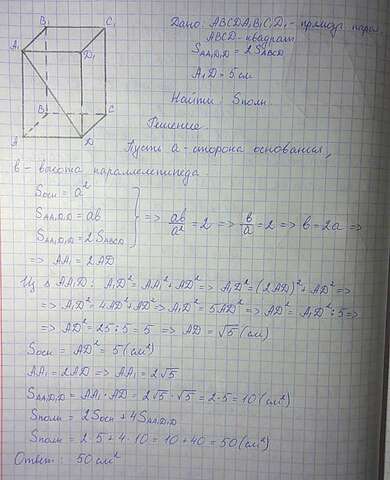 B₁ C₁
A₁ D₁
B C
A D
Дано: ABCDA₁B₁C₁D₁ - прямоуг. парал.
ABCD - квадрат
S_AA₁D₁D = 2 S_ABCD
A₁D = 5 см
Найти: Sполн
Решение.
Пусть a - сторона основания,
в - высота параллелепипеда
Sосн = a²
S_AA₁D₁D = aв
S_AA₁D₁D = 2S_ABCD } => aв/a² = 2 => в/a = 2 => в = 2a =>
=> AA₁ = 2AD
Из ΔAA₁D: A₁D² = AA₁² + AD² => A₁D² = (2AD)² + AD² =>
=> A₁D² = 4AD² + AD² => A₁D² = 5AD² => AD² = A₁D² : 5 =>
=> AD² = 25 : 5 = 5 => AD = √5 (см)
Sосн = AD² = 5 (см²)
AA₁ = 2AD => AA₁ = 2√5
S_AA₁D₁D = AA₁ · AD = 2√5 · √5 = 2·5 = 10 (см²)
Sполн = 2Sосн + 4S_AA₁D₁D
Sполн = 2·5 + 4·10 = 10 + 40 = 50 (см²)
Ответ: 50 см²